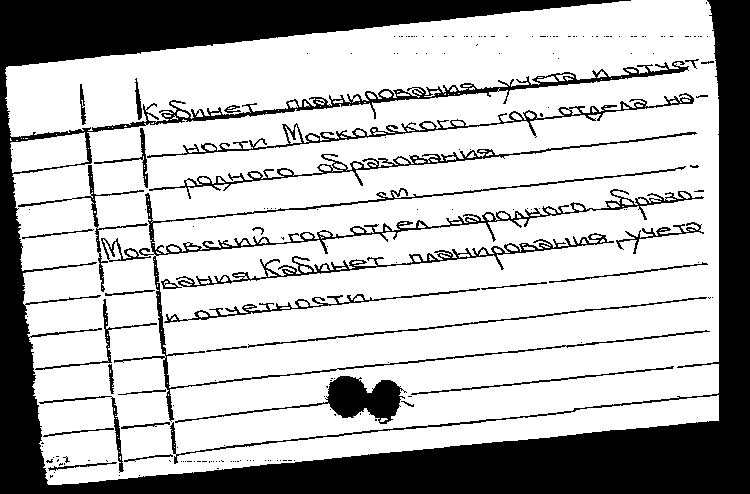 Кабинет планирования, учета и отчет-
ности Московского гор. отдела на-
родного образования.
см.
Московский гор. отдел народного образо-
вания. Кабинет планирования, учета
и отчетности.